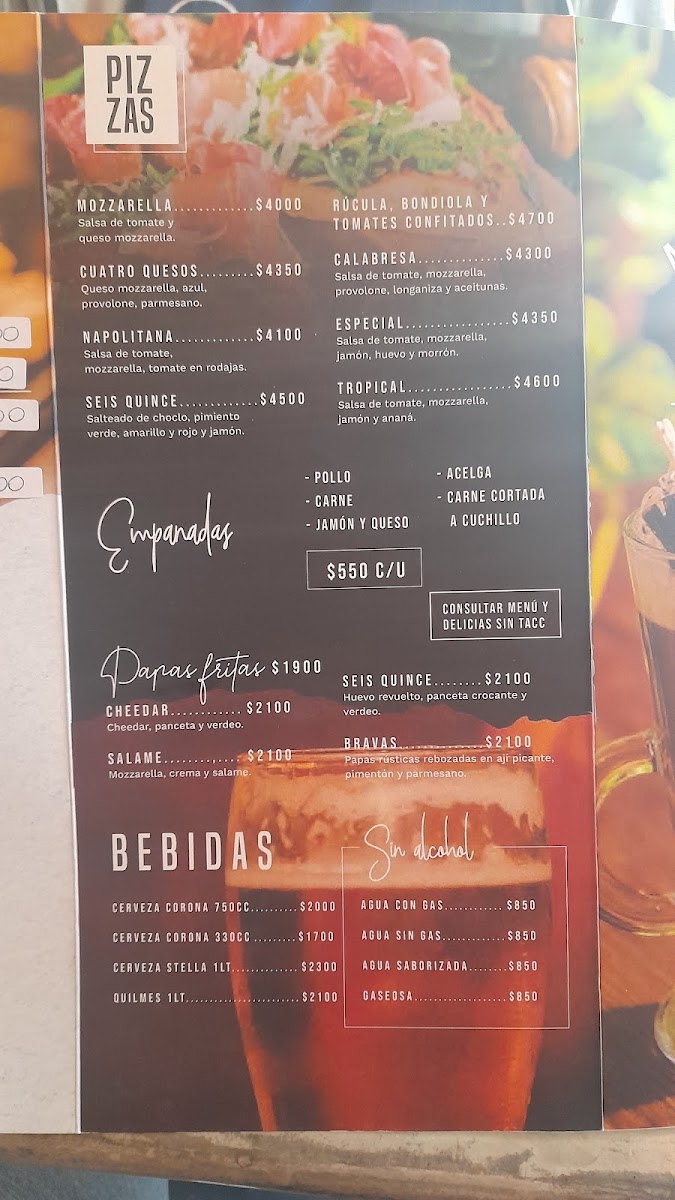 PIZ
ZAS
MOZZARELLA.............$4000
Salsa de tomate y
queso mozzarella.
CUATRO QUESOS.........$4350
Queso mozzarella, azul,
provolone, parmesano.
NAPOLITANA.............$4100
Salsa de tomate,
mozzarella, tomate en rodajas.
SEIS QUINCE.............$4500
Salteado de choclo, pimiento
verde, amarillo y rojo y jamón.
RÚCULA, BONDIOLA Y
TOMATES CONFITADOS..$4700
CALABRESA..............$4300
Salsa de tomate, mozzarella,
provolone, longaniza y aceitunas.
ESPECIAL.................$4350
Salsa de tomate, mozzarella,
jamón, huevo y morrón.
TROPICAL.................$4600
Salsa de tomate, mozzarella,
jamón y ananá.
Empanadas
- POLLO
- CARNE
- JAMÓN Y QUESO
- ACELGA
- CARNE CORTADA
A CUCHILLO
$550 C/U
CONSULTAR MENÚ Y
DELICIAS SIN TACC
Papas fritas $1900
CHEEDAR............ $2100
Cheedar, panceta y verdeo.
SALAME............. $2100
Mozzarella, crema y salame.
SEIS QUINCE........$2100
Huevo revuelto, panceta crocante y
verdeo.
BRAVAS..............$2100
Papas rústicas rebozadas en ají picante,
pimentón y parmesano.
BEBIDAS
CERVEZA CORONA 750CC..........$2000
CERVEZA CORONA 330CC.........$1700
CERVEZA STELLA 1LT..............$2300
QUILMES 1LT.......................$2100
Sin alcohol
AGUA CON GAS............$850
AGUA SIN GAS.............$850
AGUA SABORIZADA........$850
GASEOSA...................$850